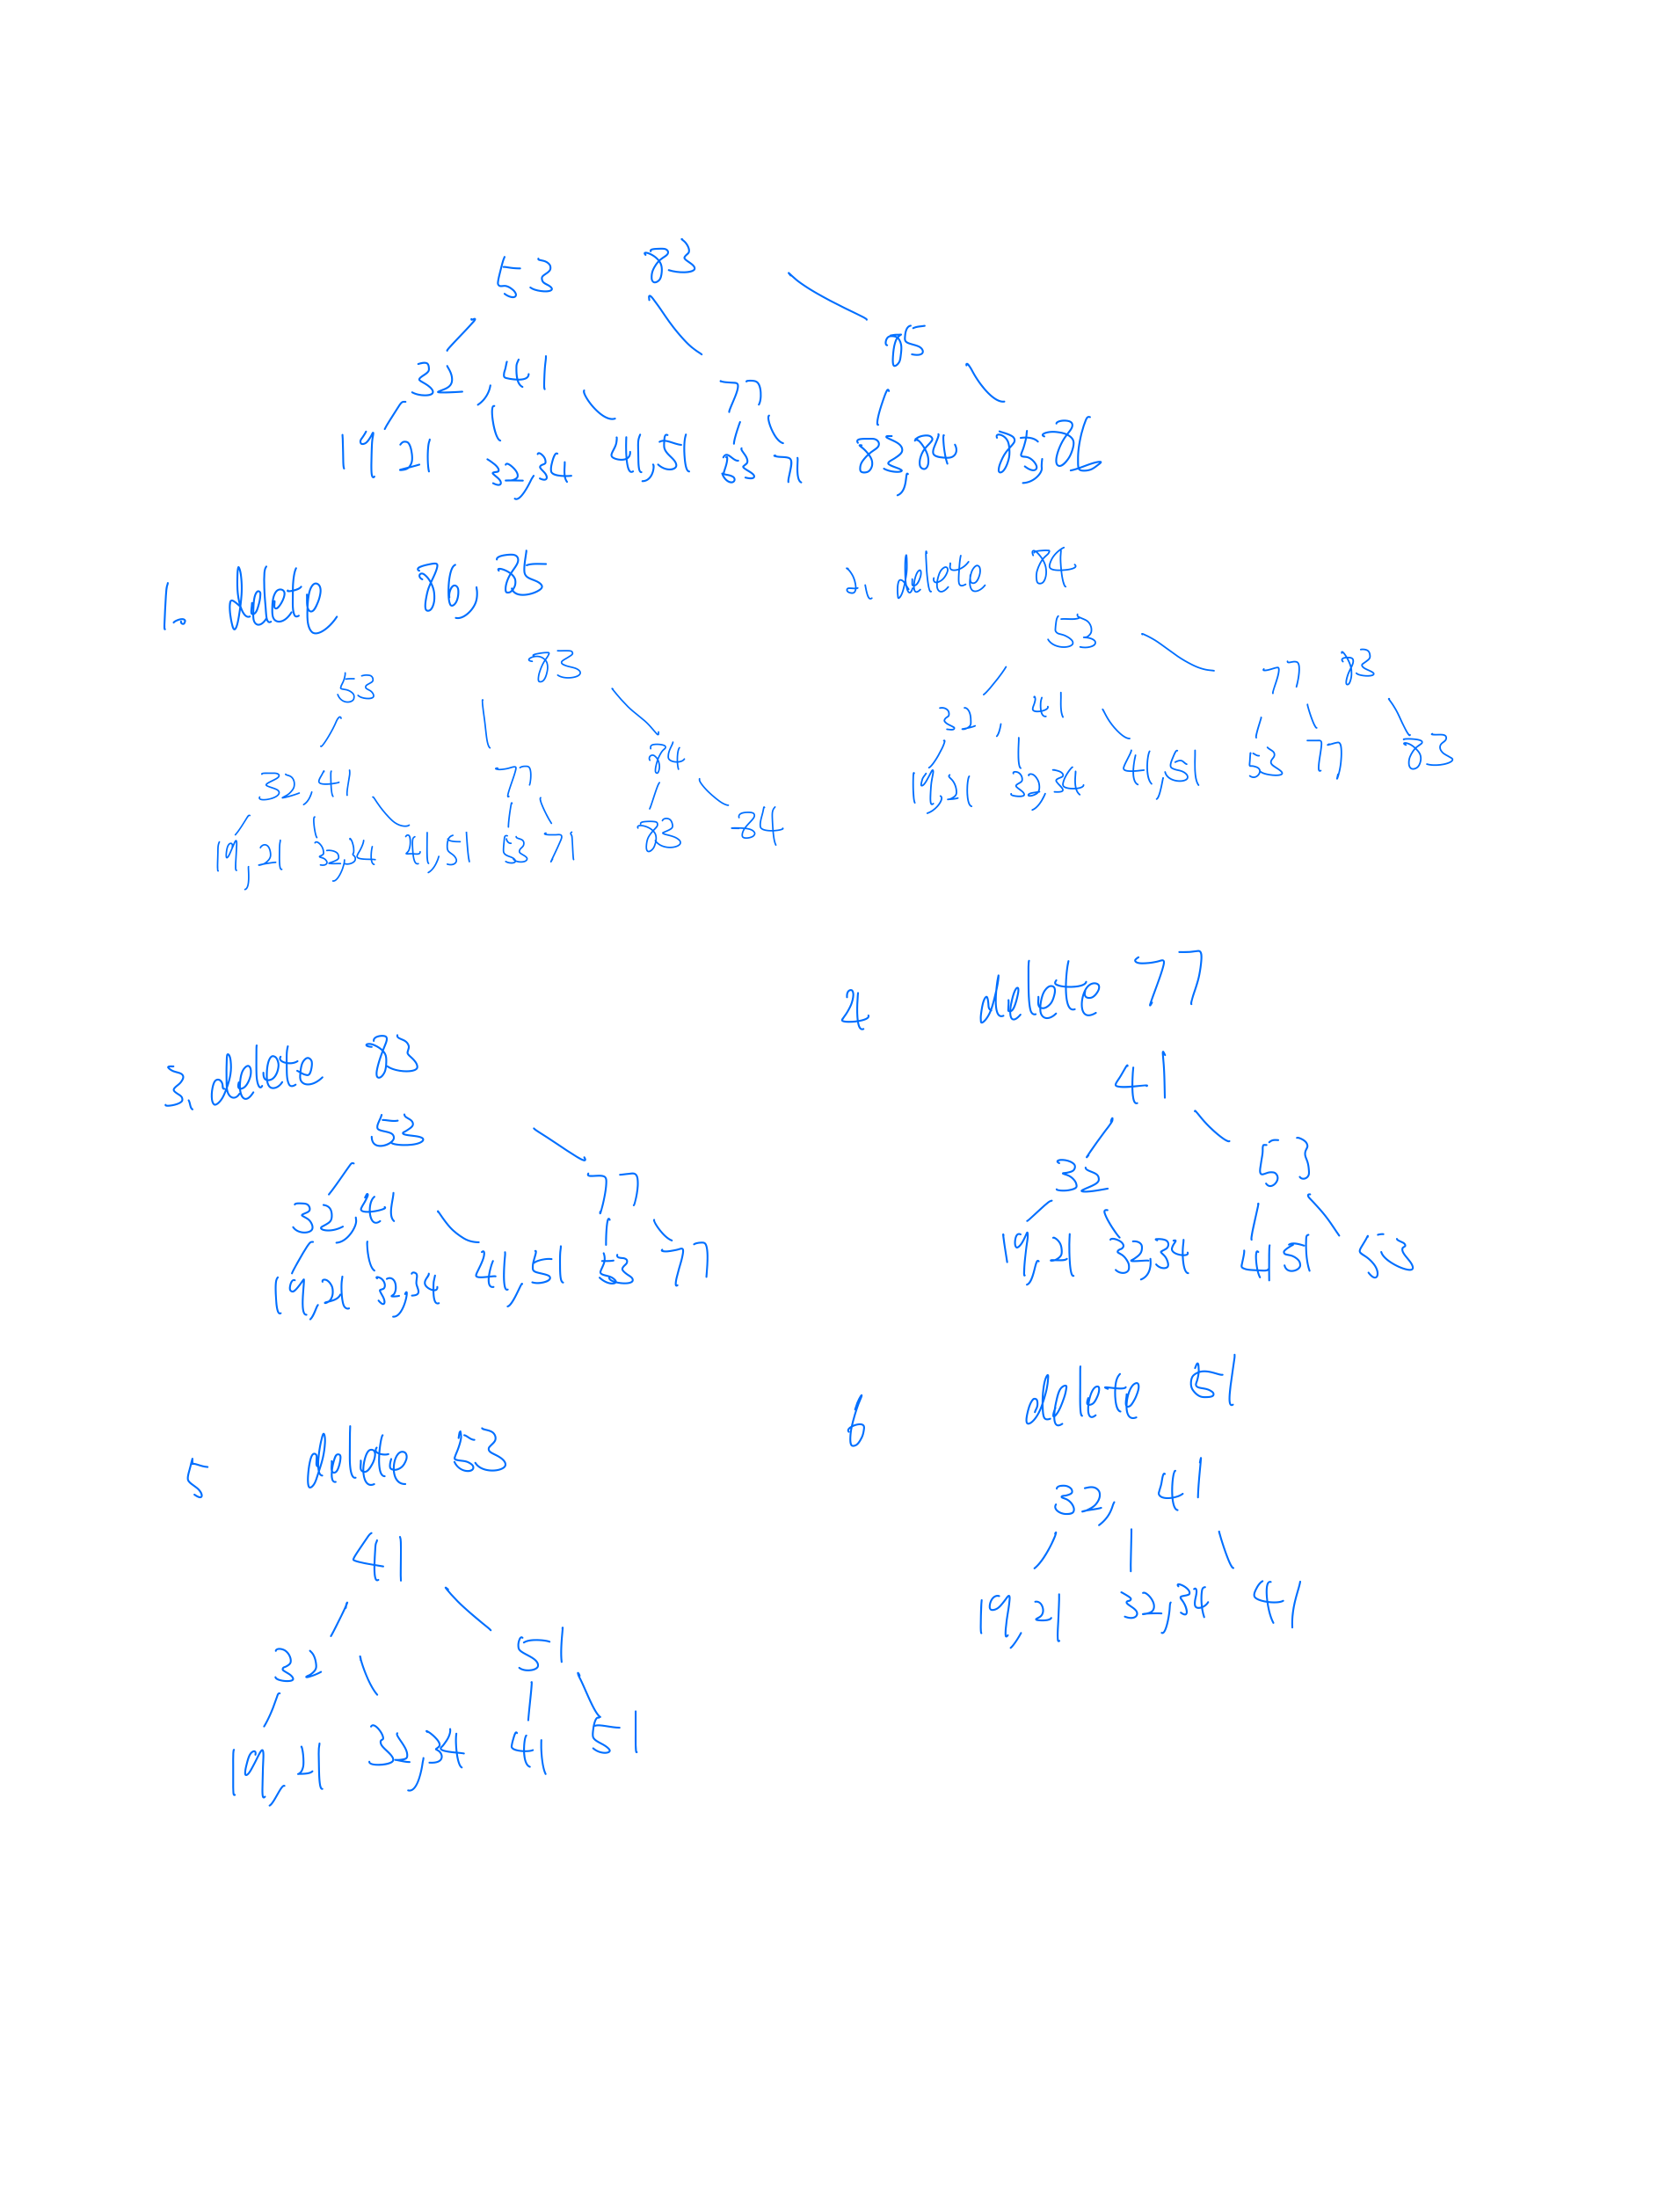 53 83
32, 41 77 85
19 21 32,34 41,51 53 77 83,84 85,86
1. delete 86, 85
53 83
32, 41 77 84
19,21 32,34 41,51 53 77 83 84
2. delete 84
53 77 83
32, 41
19,21 32,34 41,51 53 77 83
3. delete 83
53
32,41 77
19,21 32,34 41,51 53 77
4 delete 77
41
32 53
19,21 32,34 41 51 53
5 delete 53
41
32 51
19,21 32,34 41 51
6 delete 51
32, 41
19,21 32,34 41